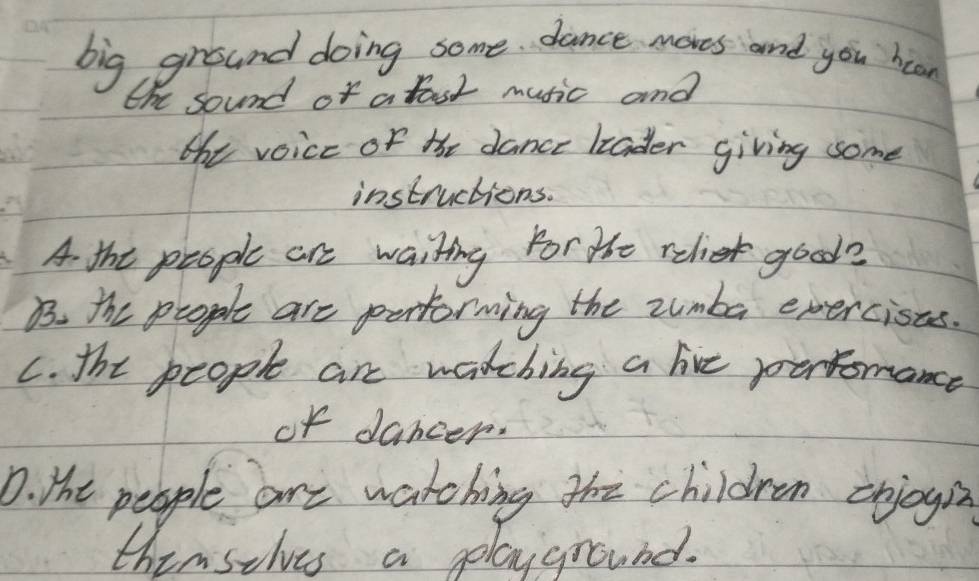 big ground doing some dance moves and you hear
the sound of a fast music and
the voice of the dance leader giving some
instructions.
A. the people are waiting for the relief good?
B. The people are performing the zumba exercises.
C. The people are watching a live perfomance
of dancer.
D. The people are watching the children enjoyin
themselves a playground.